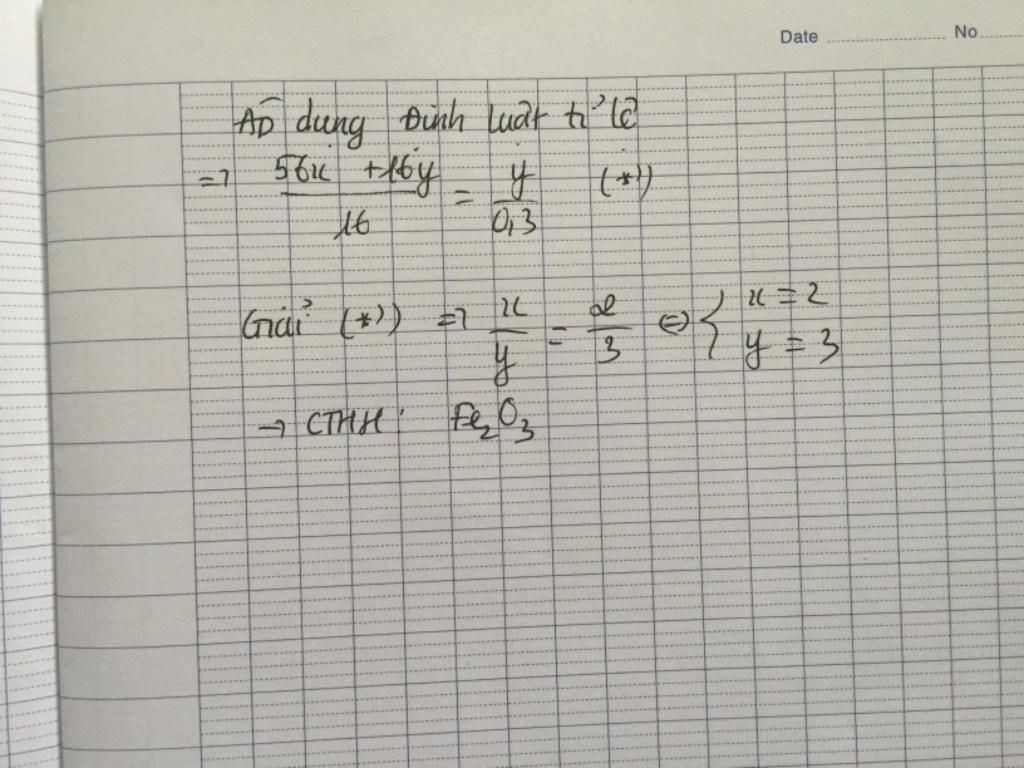 Date ........ No .....
ÁD dụng Định luật tỉ lệ
=> (56x + 16y)/16 = y/0,3 (*)
Giải (*) => x/y = 2/3 <=> { x = 2
y = 3
→ CTHH: Fe₂O₃